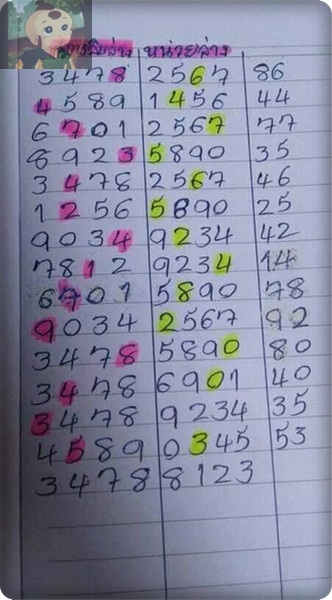 ตารางสิบล่าง หน่วยล่าง
3478 2567 86
4589 1456 44
6701 2567 77
8923 5890 35
3478 2567 46
1256 5890 25
9034 9234 42
7812 9234 14
6701 5890 78
9034 2567 92
3478 5890 80
3478 6901 40
3478 9234 35
4589 0345 53
3478 8123